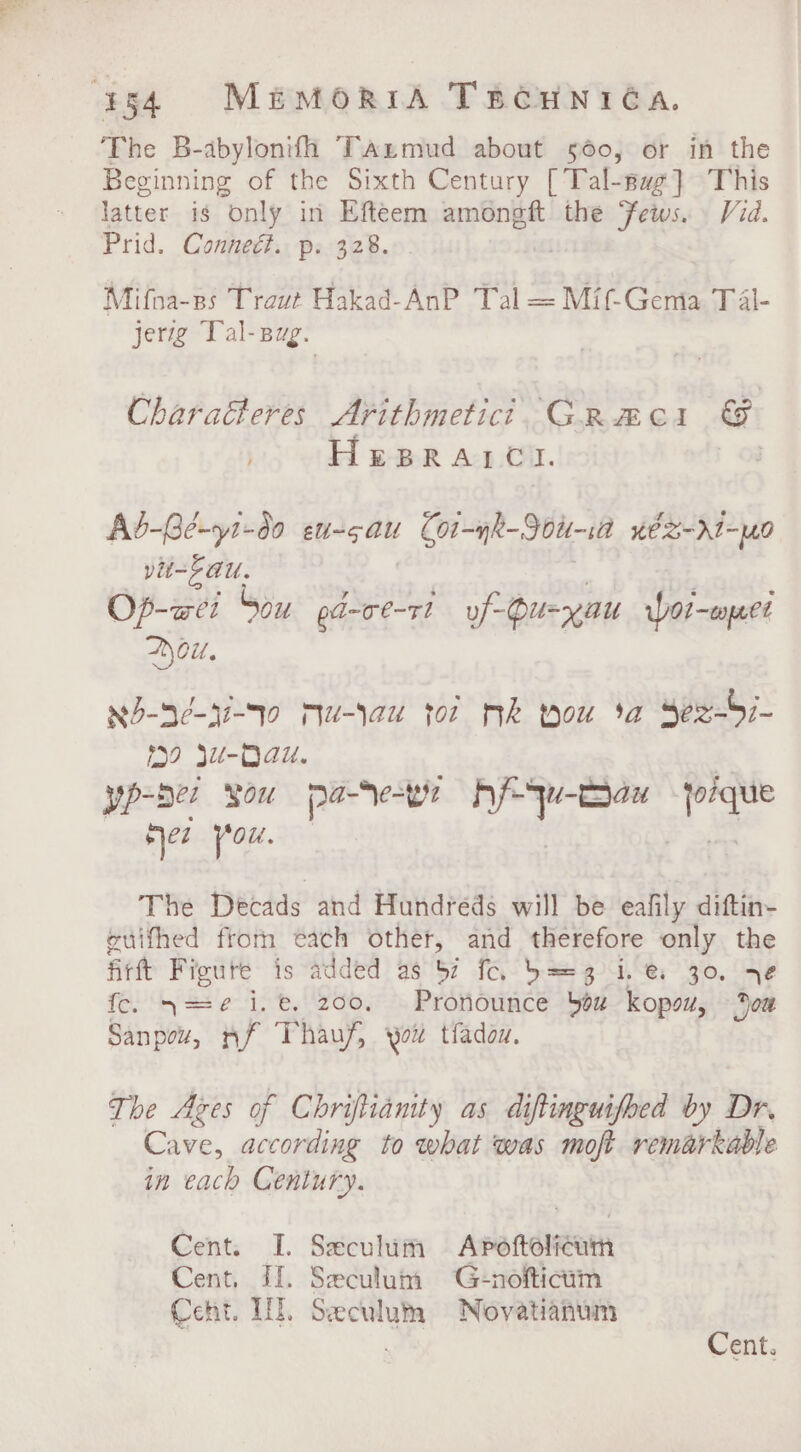 154 MEMORIA TECHNICA.
The B-abyloniſh Talmud about 500, or in the
Beginning of the Sixth Century [Tal-bug] This
latter is only in Eſteem amongſt the Jews. Vid.
Prid. Connect. p. 328.
Miſna-bs Traut Hakad-AnP Tal = Miſ-Gema Tál-
jerig Tal-bug.
Characteres Arithmetici GRÆCI &
HEBRAICI.
Αb-βé-γi-δo εu-ςau ζoi-ηk-θou-ιa κéz-λi-μo
νu-ξau.
Op-πei ϟou ρa-σe-τi υf-φu-χau ψoi-ωμei
ϡou.
אb-בé-גi-דo הu-וau זoi חk טou יa כez-לi-
מo נu-סau.
עp-פei צou קa-רe-שi תf-ךu-םau ןoique
ףei ץou.
The Decads and Hundreds will be eaſily diſtin-
guiſhed from each other, and therefore only the
firſt Figure is added as לi ſc. ל=3 i. e. 30. רe
ſc. ר=e i. e. 200. Pronounce ϟou kopou, ϡou
Sanpou, תf Thauf, ץou tſadou.
The Ages of Chriſtianity as diſtinguiſhed by Dr.
Cave, according to what was moſt remarkable
in each Century.
Cent. I. Sæculum Apoſtolicum
Cent. II. Sæculum G-noſticum
Cent. III. Sæculum Novatianum
Cent.